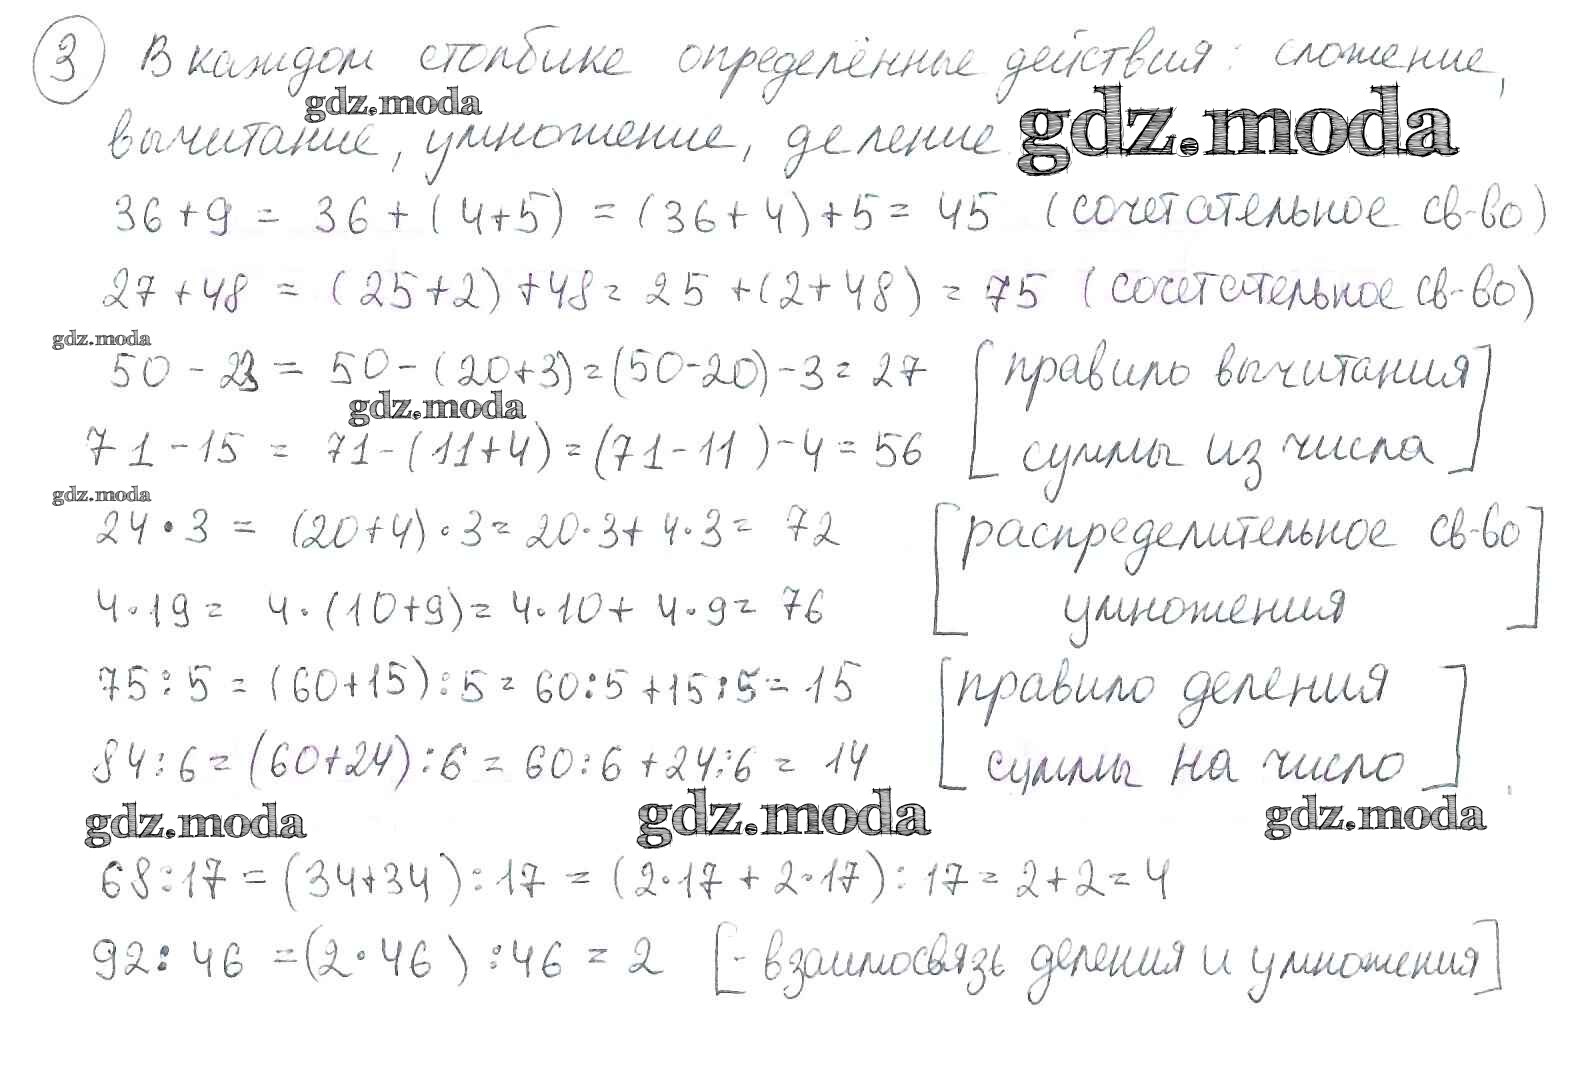 3 В каждом столбике определённые действия: сложение,
gdz.moda
gdz.moda
вычитание, умножение, деление
36+9 = 36+(4+5) = (36+4)+5= 45 (сочетательное св-во)
27+48 = (25+2)+48= 25+(2+48) = 75 (сочетательное св-во)
gdz.moda
50-23 = 50-(20+3)=(50-20)-3= 27 [правило вычитания
gdz.moda
71-15 = 71-(11+4)=(71-11)-4=56 суммы из числа]
gdz.moda
24•3 = (20+4)•3= 20•3+ 4•3= 72 [распределительное св-во
4•19= 4•(10+9)= 4•10+ 4•9= 76 умножения]
75:5 = (60+15):5= 60:5+15:5=15 [правило деления
84:6=(60+24):6 = 60:6+24:6 = 14 суммы на число]
gdz.moda gdz.moda gdz.moda
68:17=(34+34):17 = (2•17+2•17):17=2+2=4
92:46 =(2•46):46 = 2 [- взаимосвязь деления и умножения]